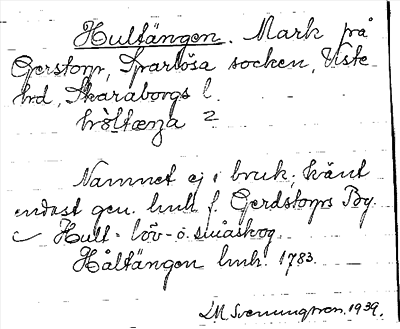 Hultängen. Mark på
Gerstorp, Sparlösa socken, Viste
hrd, Skaraborgs l.
hòltæŋa 2
Namnet ej i bruk; känt
endast gen. lmh f. Gerdstorps By.
Hult - löv- o. småskog
Håltängen lmh. 1783.
LM Svenungsson. 1939.